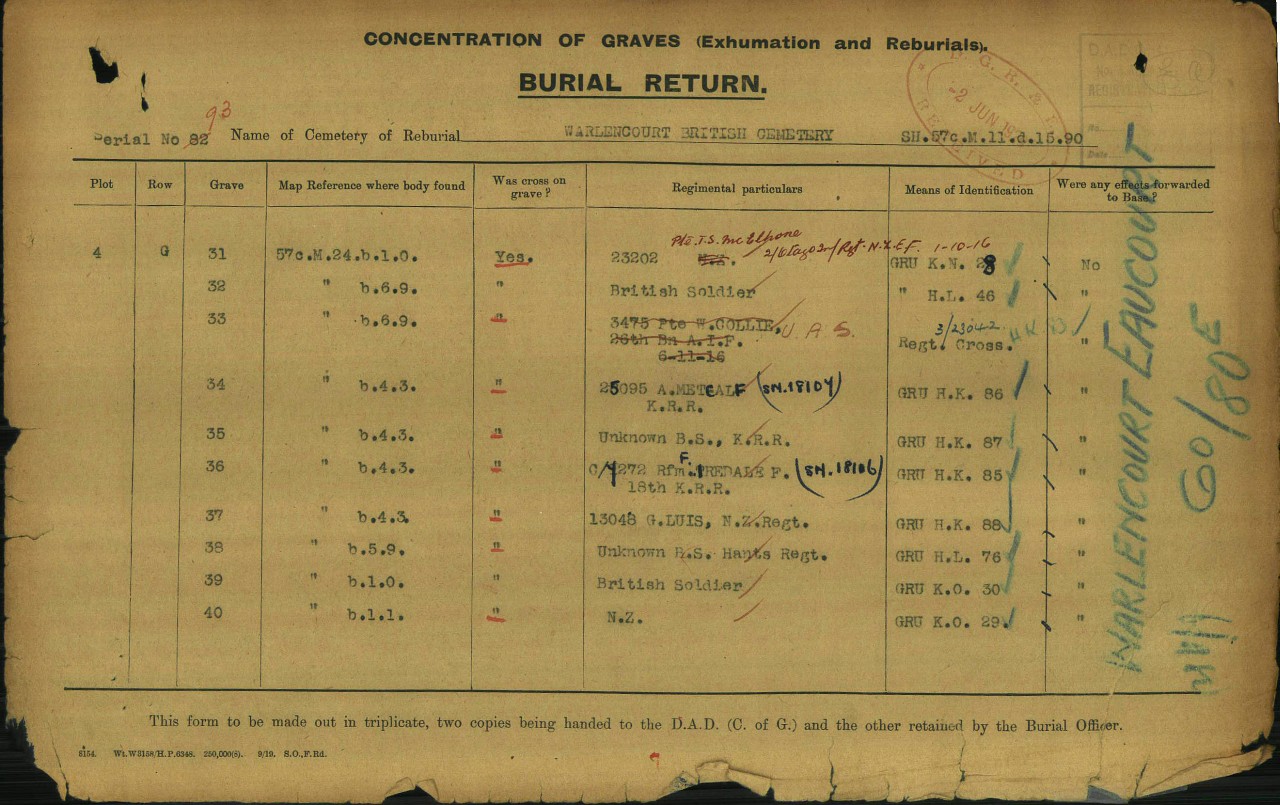 CONCENTRATION OF GRAVES (Exhumation and Reburials).
BURIAL RETURN.
D. G. R. & E.
-2 JUN
RECEIVED
D.A.D.
No.
Date
Serial No 82 93 Name of Cemetery of Reburial WARLENCOURT BRITISH CEMETERY SH.57c.M.11.d.15.90
Plot Row Grave Map Reference where body found Was cross on grave? Regimental particulars Means of Identification Were any effects forwarded to Base?
Pte. T.S. McElhone
2/Otago Inf Rgt. N.Z.E.F. 1-10-16
4 G 31 57c.M.24.b.1.0. Yes. 23202 N.Z. GRU K.N. 28 No
32 " b.6.9. " British Soldier " H.L. 46 "
33 " b.6.9. " 3475 Pte W.COLLIE, U.A.S. 3/23042
26th Bn A.I.F. Regt. Cross. "
6-11-16
34 " b.4.3. " 25095 A.METCALF (SN.18104) GRU H.K. 86 "
K.R.R.
35 " b.4.3. " Unknown B.S., K.R.R. GRU H.K. 87 "
36 " b.4.3. " C/7272 Rfm. F. IREDALE F. (SN.18106) GRU H.K. 85 "
18th K.R.R.
37 " b.4.3. " 13048 G.LUIS, N.Z.Regt. GRU H.K. 88 "
38 " b.5.9. " Unknown B.S. Hants Regt. GRU H.L. 76 "
39 " b.1.0. " British Soldier GRU K.O. 30 "
40 " b.1.1. " N.Z. GRU K.O. 29. "
WARLENCOURT EAUCOURT
60/80E
This form to be made out in triplicate, two copies being handed to the D.A.D. (C. of G.) and the other retained by the Burial Officer.
8154. Wt.W3158/H.P.6348. 250,000(8). 9/19. S.O.,F.Rd.
9